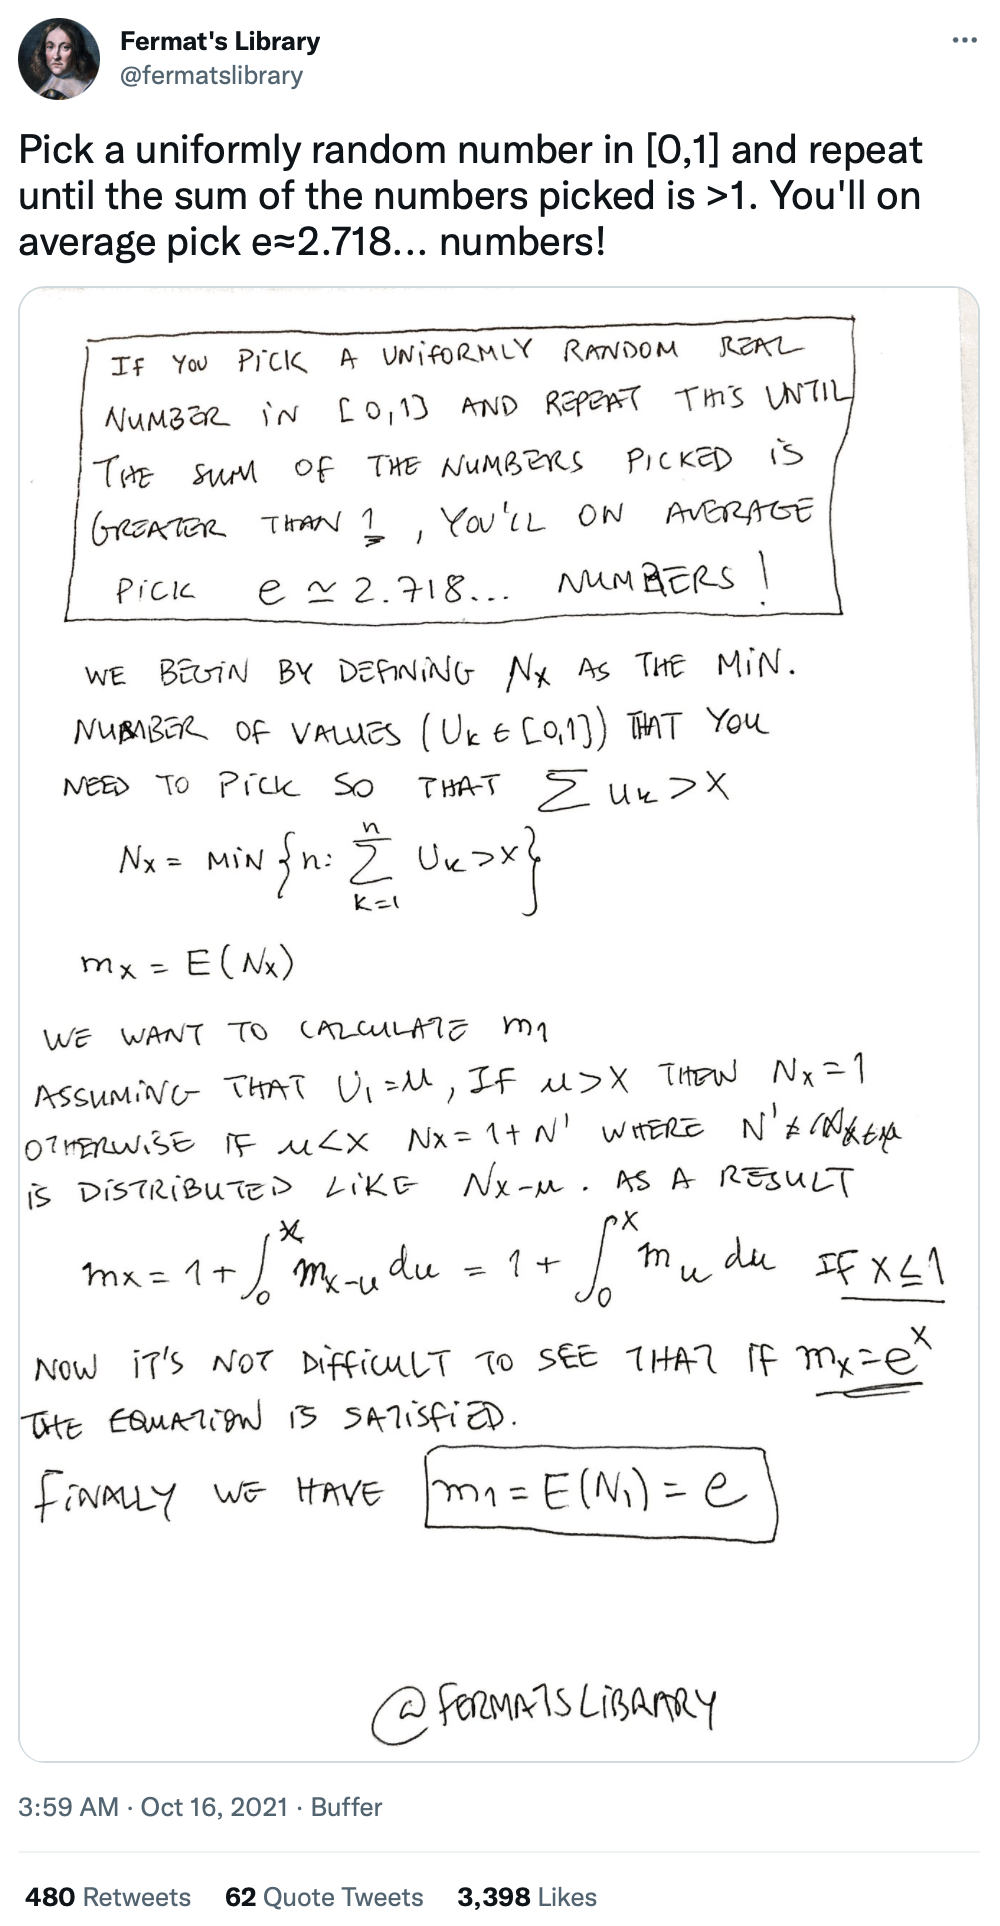 Fermat's Library
@fermatslibrary
Pick a uniformly random number in [0,1] and repeat
until the sum of the numbers picked is >1. You'll on
average pick e≈2.718... numbers!
IF YOU PICK A UNIFORMLY RANDOM REAL
NUMBER IN [0,1] AND REPEAT THIS UNTIL
THE SUM OF THE NUMBERS PICKED IS
GREATER THAN 1, YOU'LL ON AVERAGE
PICK e ≃ 2.718... NUMBERS!
WE BEGIN BY DEFINING Nx AS THE MIN.
NUMBER OF VALUES (Uk ∈ [0,1]) THAT YOU
NEED TO PICK SO THAT ∑ uk > x
Nx = MIN {n: ∑_{k=1}^{n} Uk > x}
mx = E(Nx)
WE WANT TO CALCULATE m1
ASSUMING THAT U1 = u, IF u > x THEN Nx = 1
OTHERWISE IF u < x Nx = 1 + N' WHERE N'
IS DISTRIBUTED LIKE Nx-u. AS A RESULT
mx = 1 + ∫_0^x mx-u du = 1 + ∫_0^x mu du IF x ≤ 1
NOW IT'S NOT DIFFICULT TO SEE THAT IF mx = e^x
THE EQUATION IS SATISFIED.
FINALLY WE HAVE m1 = E(N1) = e
@FERMATSLIBRARY
3:59 AM · Oct 16, 2021 · Buffer
480 Retweets 62 Quote Tweets 3,398 Likes